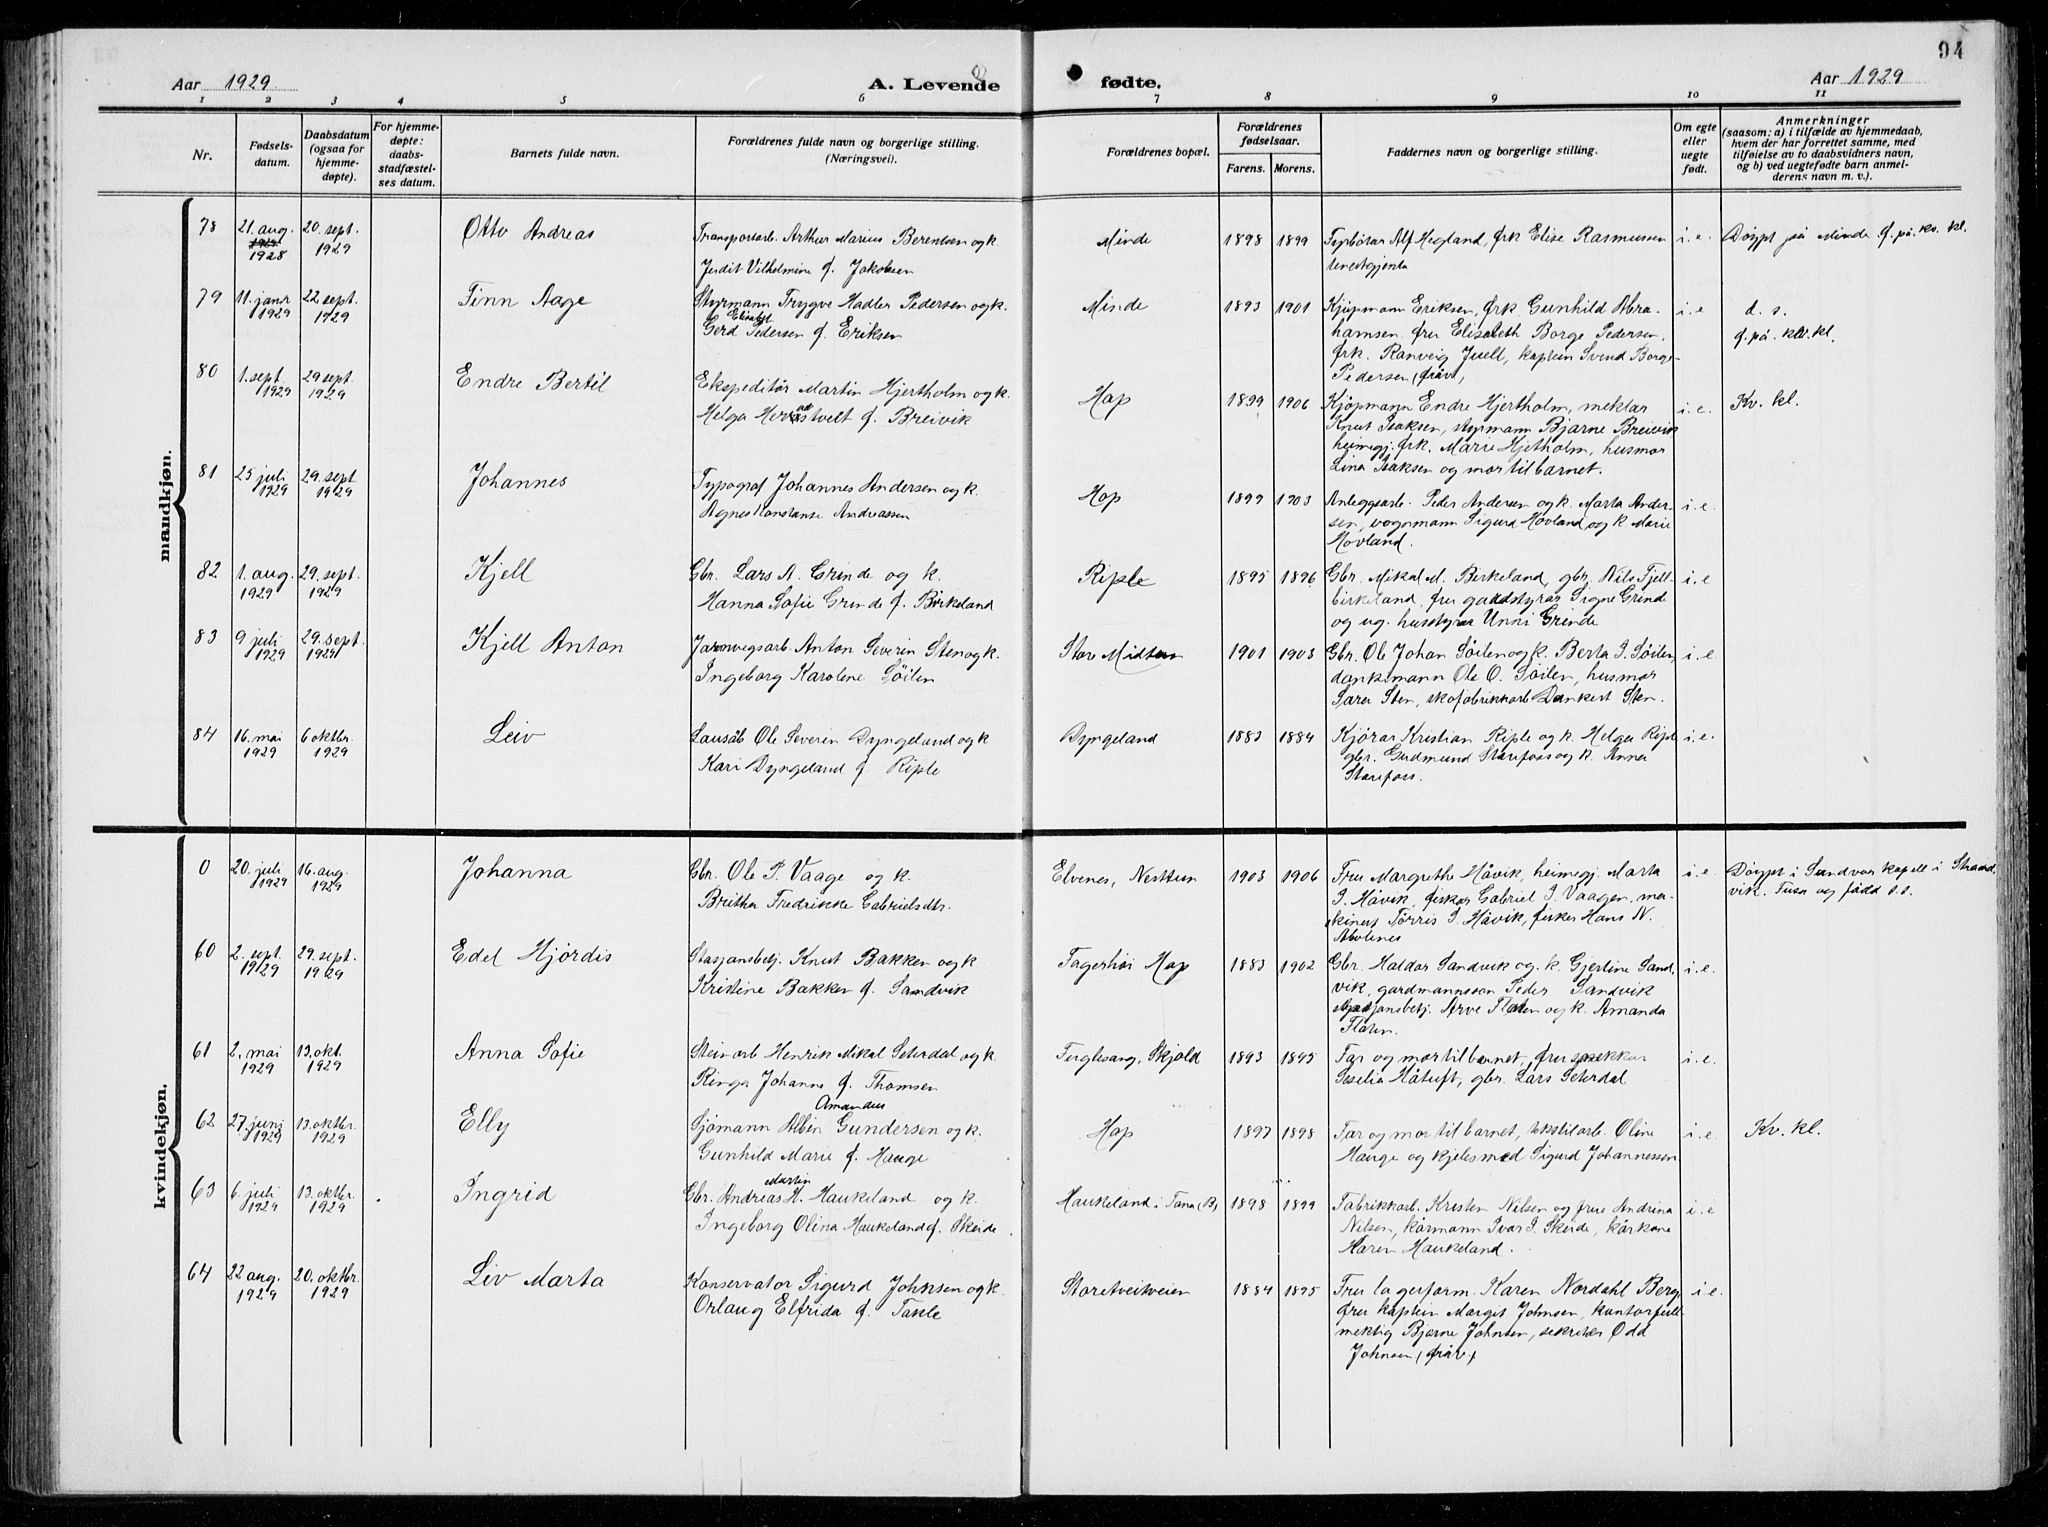 94
Aar 1929
A. Levende
fødte.
Aar 1929
1 2 3 4 5 6 7 8 9 10 11
Nr.
Fødsels-
datum.
Daabsdatum
(ogsaa for
hjemme-
døpte).
For hjemme-
døpte:
daabs-
stadfæstel-
ses datum.
Barnets fulde navn.
Forældrenes fulde navn og borgerlige stilling.
(Næringsvei).
Forældrenes bopæl.
Forældrenes
fødselsaar.
Farens. Morens.
Faddernes navn og borgerlige stilling.
Om egte
eller
uegte
født.
Anmerkninger
(saasom: a) i tilfælde av hjemmedaab,
hvem der har forrettet samme, med
tilføielse av to daabsvidners navn,
og b) ved uegtefødte barn anmel-
derens navn m. v.).
mandkjøn.
78 21. aug. 20. sept. Otto Andreas Transportarb. Arthur Marius Berentsen og k. Minde 1898 1899 Alf Hegland, frk Elise Rasmussen i. e. Döypt på Minde f. på kv. kl.
1928 1929 Jerdit Vilhelmine f. Jakobsen tenestgjenta
79 11. janr 22. sept. Finn Aage Styrmann Trygve Hadler Pedersen og k. Minde 1893 1901 Kjöpmann Eriksen, frk Gunhild Abra- i. e d. s.
1929 1929 Gerd Elisabet Pedersen f. Eriksen hamsen, fru Elisabeth Borge Pedersen, f. på kv. kl.
frk. Ranveig Juell, kaptein Svend Borge-
Pedersen (fråv),
80 1. sept. 29 sept. Endre Bertil Ekspeditör Martin Hjertholm og k. Hop 1899 1906 Kjöpmann Endre Hjertholm, meklar i. e. Kv. kl.
1929 1929 Helga f. Breivik Knut Isaksen, styrmann Bjarne Breivik
heimegj. frk. Marie Hjetholm, husmor
Lina Isaksen og mor til barnet.
81 25 juli 29. sept. Johannes Typograf Johannes Andersen og k. Hop 1899 1903 Anleggsarb. Peder Andersen og k. Marta Ander- i. e.
1929 1929 Agnes Konstanse Andreassen sen, vognmann Sigurd Hovland og k Marie
Hovland.
82 1. aug. 29. sept. Kjell Gbr. Lars A. Grinde og k. Riple 1895 1896 Gbr. Mikal M. Birkeland, gbr. Nils Fjell- i. e
1929 1929 Hanna Sofie Grinde f. Birkeland birkeland, fru gardstyrar Signe Grind
og ug. husstyrar Unni Grinde
83 9 juli 29. sept. Kjell Anton Jarnvegsarb. Anton Severin Sten og k. Store Midtun 1901 1903 Gbr. Ole Johan Söilen og k. Berta I. Söilen, i. e.
1929 1929 Ingeborg Karolene Söilen Ole O. Söilen, husmor
Sara Sten, skofabrikkarb Dankert Sten.
84 16. mai 6 oktbr. Leiv Lausab Ole Severin Dyngeland og k Dyngeland 1883 1884 Kjörar Kristian Riple og k. Helga Riple i. e.
1929 1929 Kari Dyngeland f. Riple gbr. Gudmund Starefoss og k. Anna
Starefoss.
kvindekjøn.
0 20. juli 16. aug. Johanna Gbr. Ole P. Vaage og k. Elvenes, Nesttun 1903 1906 Fru Margrethe Håvik, heimegj. Marta i. e. Döypt i Sundvor kapell i Strand
1929 1929 Britha Fredrikke Gabrielsdtr. I. Håvik, fiskar Gabriel I. Vaagen, ma- vik. Fusa og född s. s.
skinist Törris I. Håvik, fisker Hans N.
60 2. sept. 29. sept. Edel Hjördis Stasjonsbetj. Knut Bakken og k Fagerhöi Hop 1883 1902 Gbr. Haldor Sandvik og k. Gjertine Sand, i. e.
1929 1929 Kristine Bakken f. Sandvik vik, gardmannsson Peder Sandvik
stasjonsbetj. Arve Flaten og k. Amanda
Flaten.
61 2. mai 13. okt. Anna Sofie Steinarb Henrik Mikal Seterdal og k. Fuglesang, Skjold 1893 1895 Far og mor til barnet, fru snekkar i. e.
1929 1929 Ringa Johanne f. Thomsen Seselia Håtuft, gbr. Lars Seterdal
62 27. juni 13. oktbr. Elly Sjömann Albin Amandus Gundersen og k. Hop 1897 1898 Far og mor til barnet, tekstilarb. Oline i. e. Kv. kl.
1929 1929 Gunhild Marie f. Hauge Hauge og kjelesmed Sigurd Johannessen
63 6. juli 13. oktbr. Ingrid Gbr. Andreas Martin A. Haukeland og k. Haukeland i Fana (B) 1898 1899 Fabrikkarb. Kristen Nilsen og frue Andrina i. e
1929 1929 Ingeborg Olina Haukeland f. Skeide. Nilsen, kårmann Ivar I. Skeide, kårkone
Karen Haukeland.
64 22 aug. 20. oktbr. Liv Marta Konservator Sigurd Johnsen og k. Storetveitveien 1884 1895 Fru lagerform. Karen Nordahl Berg i. e.
1929 1929 Orlaug Elfrida f. Takle fru kaptein Margit Johnsen, kontorfull-
mektig Bjarne Johnsen, sekretær Odd
Johnsen (fråv)